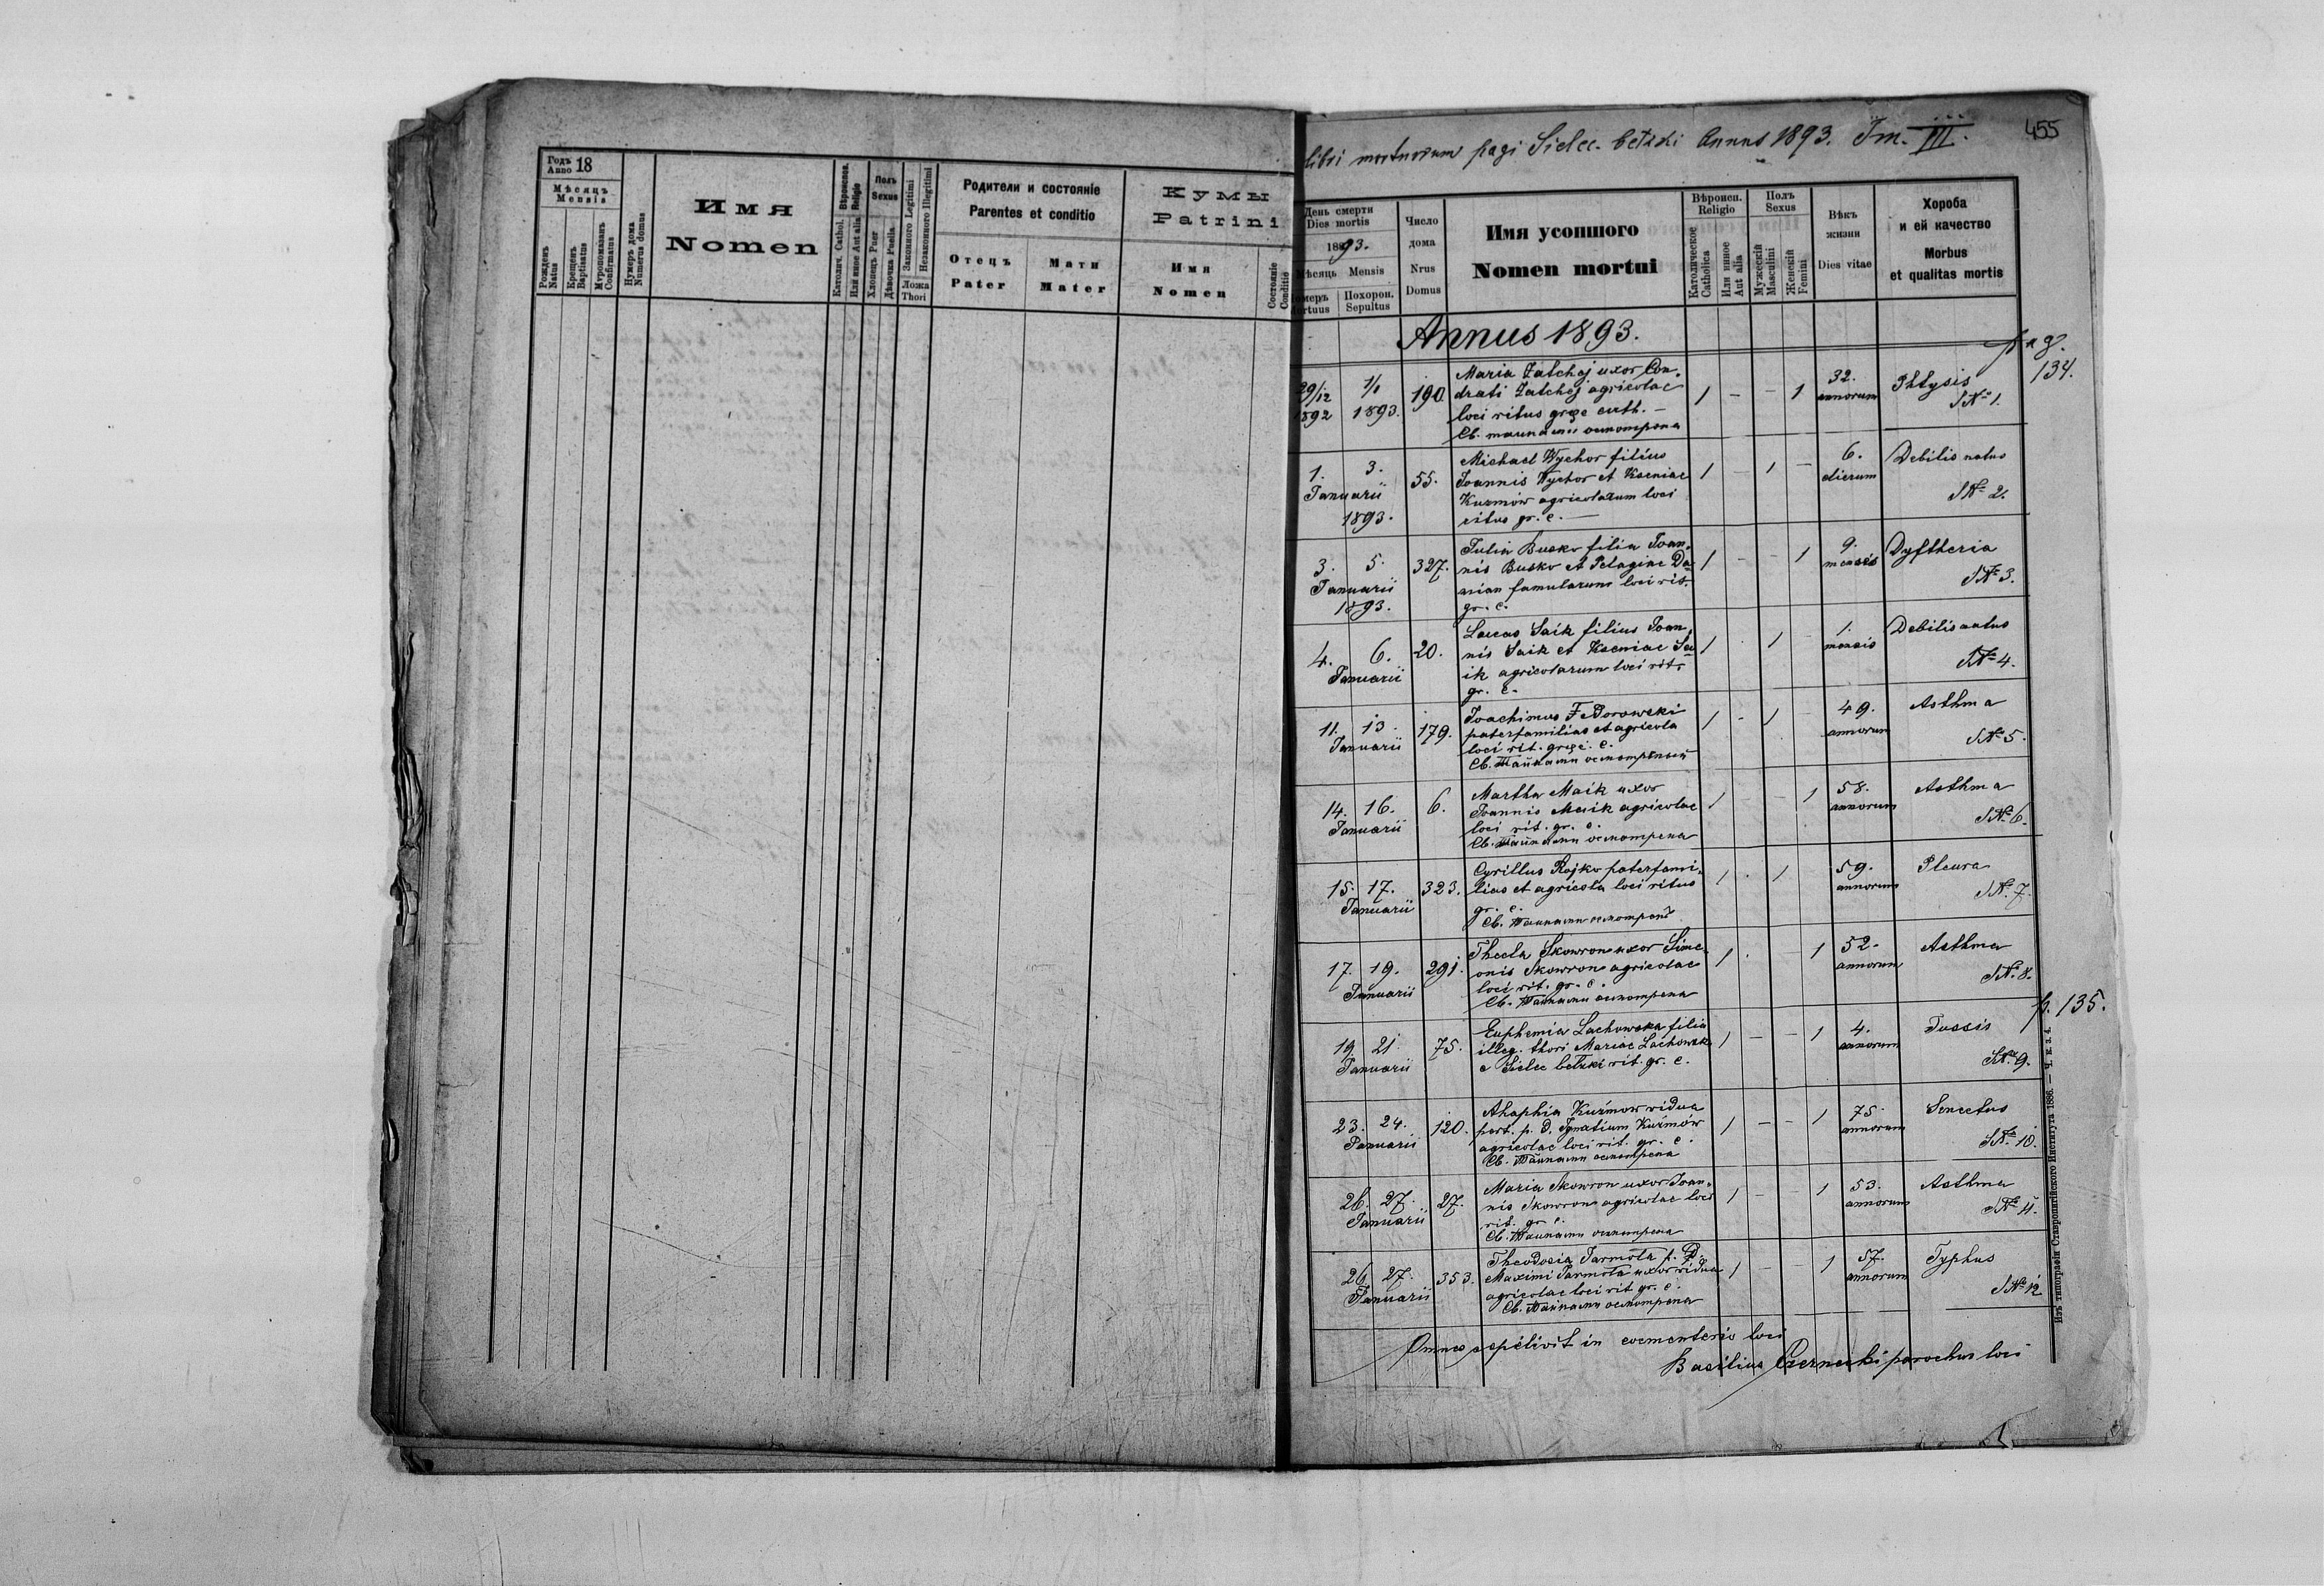 Годъ
Anno 18
Мѣсяцъ
Mensis
Рожденъ
Natus
Крещенъ
Baptisatus
Муропомазанъ
Confirmatus
Нумеръ дома
Numerus domus
Имя
Nomen
Вѣроиспов.
Religio
Католич. Cathol.
Или иное Aut alia
Полъ
Sexus
Хлопецъ Puer
Дѣвочка Puella
Законного Legitimi
Незаконного Illegitimi
Ложа
Thori
Родители и состояніе
Parentes et conditio
Отецъ
Pater
Мати
Mater
Кумы
Patrini
Имя
Nomen
Состояніе
Conditio
libri mortuorum pagi Sielec bełzki Annus 1893. Tm. III.
455
День смерти
Dies mortis
1893.
Мѣсяць Mensis
Умеръ
Mortuus
Похорон.
Sepultus
Число
дома
Nrus
Domus
Имя усопшого
Nomen mortui
Вѣроисп.
Religio
Католическое
Catholica
Или инное
Aut alia
Полъ
Sexus
Мужескій
Masculini
Женскій
Femini
Вѣкъ
жизни
Dies vitae
Хороба
и ей качество
Morbus
et qualitas mortis
Annus 1893.
pag.
134.
29/12 1/1 190. Maria Zatchej uxor Con-
drati Zatchej agricolae
1892 1893. loci ritus graec cath. –
Св. тайнами осмотрена
1 – – 1 32. annorum Phtysis
S№ 1.
1. 3. 55. Michael Wychor filius
Januarii Joannis Wychor et Kseniae
Kuzmów agricolarum loci
1893. ritus gr. c. —
1 – 1 – 6. dierum Debilis natus
S№ 2.
3. 5. 327. Julia Busko filia Joan-
Januarii nis Busko et Pelagiae Da-
nian famularum loci rit.
1893. gr. c.
1 – – 1 9. mensis Dyftheria
S№ 3.
4. 6. 20. Lucas Saik filius Joan-
Januarii nis Saik et Kseniae Sa-
ik agricolarum loci rit.
gr. c.
1 . 1 – 1. mensis Debilis natus
S№ 4.
11. 13. 179. Joachimus Fedorowski
Januarii paterfamilias et agricola
loci rit. graec. c.
Св. Тайнами осмотрѣный
1 – 1 49. annorum Asthma
S№ 5.
14. 16. 6. Martha Maik uxor
Januarii Joannis Maik agricolae
loci rit. gr. c.
Св. Тайнами осмотрена
1 – – 1 58. annorum Asthma
S№ 6.
15. 17. 323. Cyrillus Rojko paterfami-
Januarii lias et agricola loci ritus
gr. c.
Св. Тайнами осмотренъ
1 . 1 59. annorum Pleura
S№ 7.
17. 19. 291. Thecla Skowron uxor Sime-
Januarii onis Skowron agricolae
loci rit. gr. c.
Св. Тайнами осмотрена
1 . – 1 52. annorum Asthma
S№ 8.
p. 135.
19. 21. 75. Euphemia Lachowska filia
Januarii illeg. thori Mariae Lachowsk
e Sielec bełzki rit. gr. c.
1 – – 1 4. annorum Tussis
S№ 9.
23. 24. 120. Ahaphia Kuźmow vidua
Januarii post. p. D. Ignatium Kuźmów
agricolae loci rit. gr. c.
Св. Тайнами осмотрена
1 – – 1 75. annorum Senectus
S№ 10.
26. 27. 27. Maria Skowron uxor Joan-
Januarii nis Skowron agricolae loci
rit. gr. c.
Св. Тайнами осмотрена
1 – – 1 53. annorum Asthma
S№ 11.
26. 27. 353. Theodosia Jarmola p. D.
Januarii Maximi Jarmola uxor vidua
agricolae loci rit gr. c.
Св. Тайнами осмотрена
1 – – 1 57. annorum Typhus
S№ 12
Omnes sepelivit in coementerio loci
Basilius Czernecki parochus loci
Изъ типографіи Ставропигійского Института 1886. — Ч. к. з. 4.